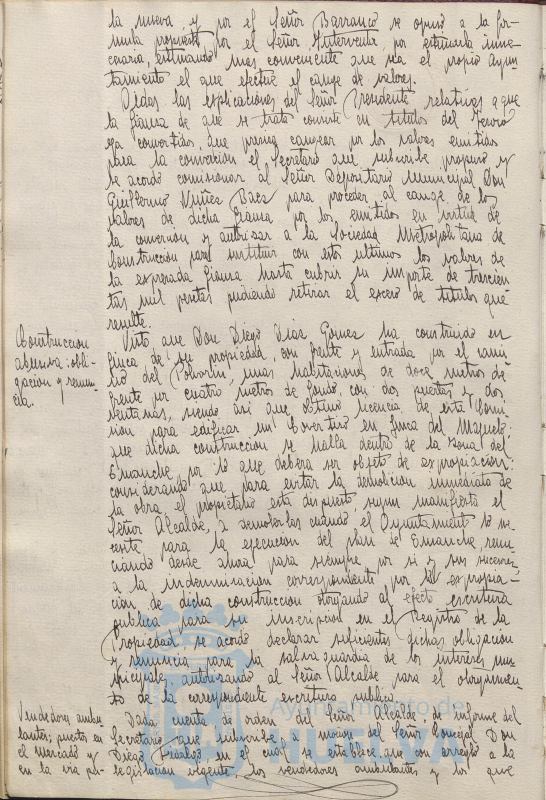 la nueva y por el Señor Barranco se opuso a la fór-
mula propuesta por el Señor Interventor por estimarla inne-
cesaria, estimando mas conveniente que sea el propio Ayun-
tamiento el que efectue el cange de valores.
Oidas las esplicaciones del Señor Presidente relativas a que
la fianza de que se trata consiste en titulos del Tesoro
ya convertidos, que precisa cangear por los valores emitidos
para la conversion el Secretario que subscribe propuso y
se acordo comisionar al Señor Depositario Municipal Don
Guillermo Nuñez Baez para proceder al cange de los
valores de dicha fianza por los emitidos en virtud de
la conversion y autorizar a la Sociedad Metropolitana de
Construccion para sustituir con estos ultimos los valores de
la expresada fianza hasta cubrir su importe de trescien
tas mil pesetas pudiendo retirar el exceso de titulos que
resulte.
Construccion
abusiva: obli-
gacion y renun-
cia.
Visto que Don Diego Diaz Gomez ha construido en
finca de su propiedad, con frente y entrada por el cami-
no del Polvorin, unas habitaciones de doce metros de
frente por cuatro metros de fondo, con dos puertas y dos
ventanas, siendo asi que obtuvo licencia de esta Comi-
sion para edificar un Cobertizo en finca del
que dicha construccion se halla dentro de la zona del
Ensanche, por lo que debera ser objeto de expropiacion:
considerando que para evitar la demolicion inmediata de
la obra, el propietario esta dispuesto, segun manifiesta el
Señor Alcalde, a demolerlas cuando el Ayuntamiento lo ne-
cesite para la ejecucion del plan de Ensanche, renun-
ciando desde ahora para siempre por si y sus sucesores
a la indemnizacion correspondiente por la expropia-
cion de dicha construccion otorgando al efecto escritura
publica para su inscripcion en el Registro de la
Propiedad, se acordo declarar suficientes dichas obligacion
y renuncia para la salvaguardia de los intereses mu-
nicipales autorizando al Señor Alcalde para el otorgamien-
to de la correspondiente escritura publica.
Vendedores ambu-
lantes; puestos en
el Mercado y
en la via pu-
Dada cuenta de orden del Señor Alcalde, de informe del
Secretario que subscribe y mocion del Señor Concejal Don
Diego Hidalgo en el cual se establece que con arreglo a la
legislacion vigente, los vendedores ambulantes y los que
Ayuntamiento de
HUELVA